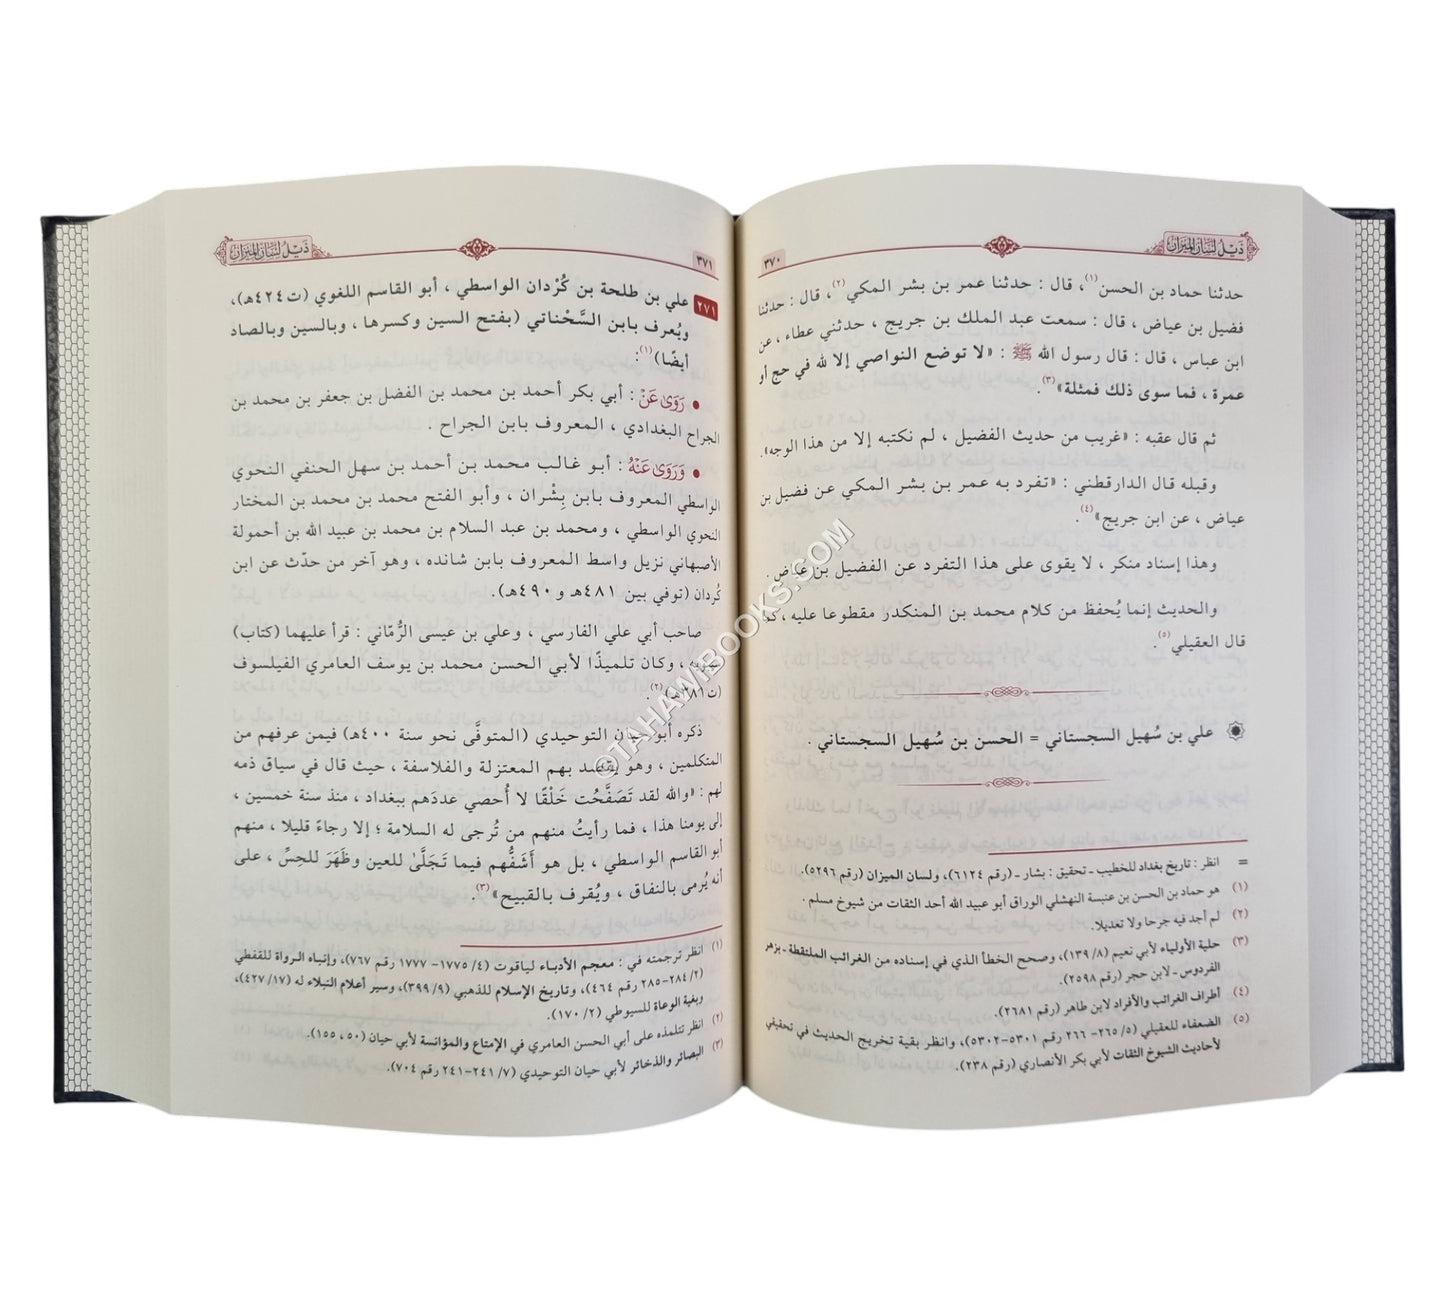 ذَيْلُ لِسَانِ المِيزَان
٣٧٠
حدثنا حماد بن الحسن(١)، قال : حدثنا عمر بن بشر المكي(٢)، قال : حدثنا
فضيل بن عياض ، قال : سمعت عبد الملك بن جريج ، حدثني عطاء ، عن
ابن عباس ، قال : قال رسول الله ﷺ : «لا توضع النواصي إلا لله في حج أو
عمرة ، فما سوى ذلك فمثلة»(٣).
ثم قال عقبه : «غريب من حديث الفضيل ، لم نكتبه إلا من هذا الوجه».
وقبله قال الدارقطني : «تفرد به عمر بن بشر المكي عن فضيل بن
عياض ، عن ابن جريج»(٤).
وهذا إسناد منكر ، لا يقوى على هذا التفرد عن الفضيل بن عياض .
والحديث إنما يُحفظ من كلام محمد بن المنكدر مقطوعا عليه ، كما
قال العقيلي(٥).
علي بن سُهيل السجستاني = الحسن بن سُهيل السجستاني .
= انظر : تاريخ بغداد للخطيب ـ تحقيق : بشار ـ (رقم ٦١٢٤)، ولسان الميزان (رقم ٥٢٩٦).
(١) هو حماد بن الحسن بن عنبسة النهشلي الوراق أبو عبيد الله أحد الثقات من شيوخ مسلم .
(٢) لم أجد فيه جرحا ولا تعديلا.
(٣) حلية الأولياء لأبي نعيم (٨/ ١٣٩)، وصحح الخطأ الذي في إسناده من الغرائب الملتقطة ـ بزهر
الفردوس ـ لابن حجر (رقم ٢٥٩٨).
(٤) أطراف الغرائب والأفراد لابن طاهر (رقم ٢٦٨١).
(٥) الضعفاء للعقيلي (٥/ ٢٦٥- ٢٦٦ رقم ٥٣٠١-٥٣٠٢)، وانظر بقية تخريج الحديث في تحقيقي
لأحاديث الشيوخ الثقات لأبي بكر الأنصاري (رقم ٢٣٨).
ذَيْلُ لِسَانِ المِيزَان
٣٧١
٢٧١ علي بن طلحة بن كُرْدان الواسطي ، أبو القاسم اللغوي (ت٤٢٤هـ)،
ويُعرف بابن السَّحْناتي (بفتح السين وكسرها ، وبالسين وبالصاد
أيضًا)(١):
• رَوَىٰ عَنْ : أبي بكر أحمد بن محمد بن الفضل بن جعفر بن محمد بن
الجراح البغدادي ، المعروف بابن الجراح .
• وَرَوَىٰ عَنْهُ : أبو غالب محمد بن أحمد بن سهل الحنفي النحوي
الواسطي المعروف بابن بِشْران ، وأبو الفتح محمد بن محمد بن المختار
النحوي الواسطي ، ومحمد بن عبد السلام بن محمد بن عبيد الله بن أحمولة
الأصبهاني نزيل واسط المعروف بابن شانده ، وهو آخر من حدّث عن ابن
كُردان (توفي بين ٤٨١هـ و ٤٩٠هـ).
صاحب أبي علي الفارسي ، وعلي بن عيسى الرُّمّاني : قرأ عليهما (كتاب)
سيبويه ، وكان تلميذًا لأبي الحسن محمد بن يوسف العامري الفيلسوف
(ت٣٨١هـ)(٢).
ذكره أبو حيان التوحيدي (المتوفَّى نحو سنة ٤٠٠هـ) فيمن عرفهم من
المتكلمين ، وهو يقصد بهم المعتزلة والفلاسفة ، حيث قال في سياق ذمه
لهم : «والله لقد تَصَفَّحْت خَلْقًا لا أُحصي عددَهم ببغداد ، منذ سنة خمسين ،
إلى يومنا هذا ، فما رأيتُ منهم من تُرجى له السلامة ؛ إلا رجاءً قليلا ، منهم
أبو القاسم الواسطي ، بل هو أَشَفُّهم فيما تَجَلَّىٰ للعين وظَهَرَ للحِسِّ ، على
أنه يُرمى بالنفاق ، ويُقرف بالقبيح»(٣).
(١) انظر ترجمته في : معجم الأدباء لياقوت (٤/ ١٧٧٥- ١٧٧٧ رقم ٧٦٧)، وإنباه الرواة للقفطي
(٢/ ٢٨٤-٢٨٥ رقم ٤٦٤)، وتاريخ الإسلام للذهبي (٩/ ٣٩٩)، وسير أعلام النبلاء له (١٧/ ٤٢٧)،
وبغية الوعاة للسيوطي (٢/ ١٧٠).
(٢) انظر تتلمذه على أبي الحسن العامري في الإمتاع والمؤانسة لأبي حيان (٥٠ ، ١٥٥).
(٣) البصائر والذخائر لأبي حيان التوحيدي (٧/ ٢٤١-٢٤١ رقم ٧٠٤).
©TAHAWIBOOKS.COM